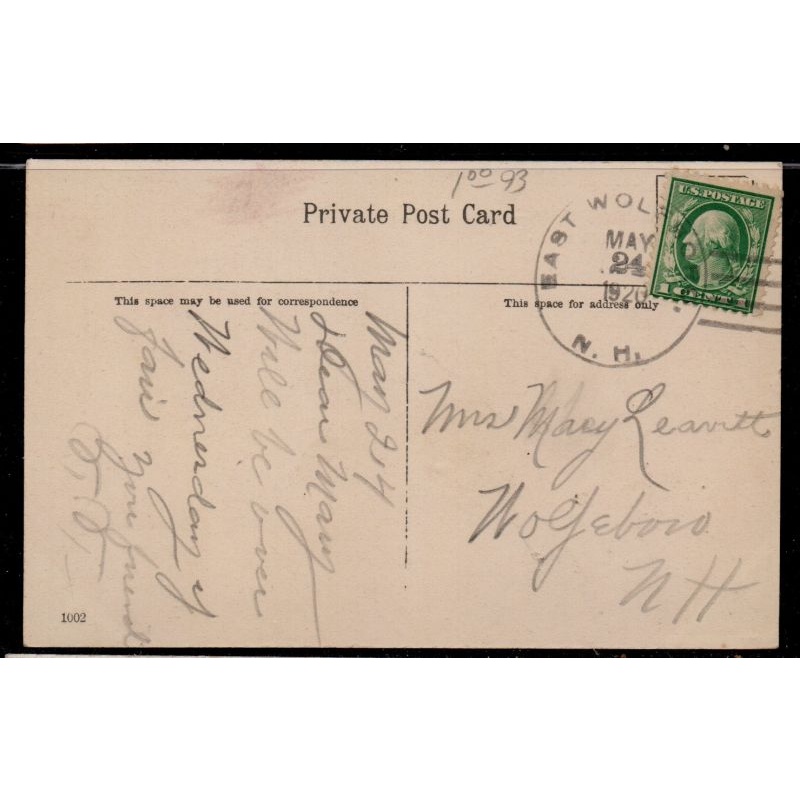 1 00 93
Private Post Card
EAST WOL
MAY
24
1920
N. H.
U.S. POSTAGE
1 CENT 1
This space may be used for correspondence
This space for address only
May 24
Dear Mary
Will be over
Wednesday if
fair your friend
Mrs Mary Leavitt
Wolfeboro
NH
1002